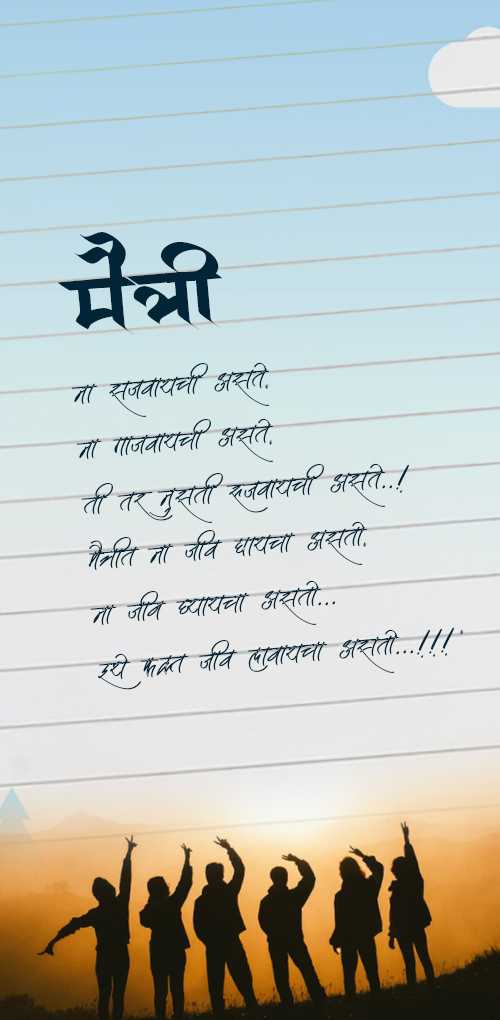 मैत्री
ना सजवायची असते.
ना गाजवायची असते.
ती तर नुसती रुजवायची असते..!
मैत्रीत ना जीव द्यायचा असतो.
ना जीव घ्यायचा असतो...
इथे फक्त जीव लावायचा असतो...!!!'